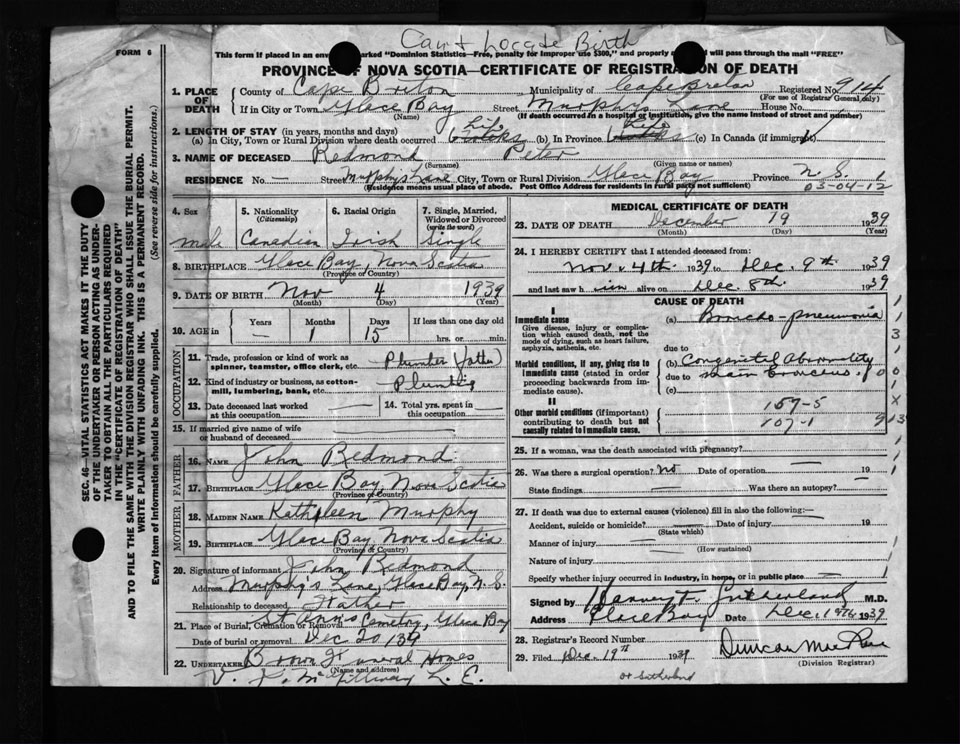 Can't Locate Birth
FORM 6
This form if placed in an env marked "Dominion Statistics—Free, penalty for improper use $300," and property will pass through the mail "FREE"
PROVINCE OF NOVA SCOTIA—CERTIFICATE OF REGISTRATION OF DEATH
1. PLACE OF DEATH County of Cape Breton Municipality of Cape Breton Registered No. 914
(For use of Registrar General only)
If in City or Town Glace Bay Street Murphy's Lane House No.
(Name) (If death occurred in a hospital or institution, give its name instead of street and number)
2. LENGTH OF STAY (in years, months and days)
(a) In City, Town or Rural Division where death occurred Life (b) In Province Life (c) In Canada (if immigrant)
3. NAME OF DECEASED Redmond Peter
(Surname) (Given name or names)
RESIDENCE No. — Street Murphy's Lane City, Town or Rural Division Glace Bay Province N. S.
(Residence means usual place of abode. Post Office Address for residents in rural parts not sufficient) 03-04-12
4. Sex 5. Nationality (Citizenship) 6. Racial Origin 7. Single, Married, Widowed or Divorced (write the word)
male Canadian Irish Single
8. BIRTHPLACE Glace Bay, Nova Scotia
(Province or Country)
9. DATE OF BIRTH Nov 4 1939
(Month) (Day) (Year)
10. AGE in Years — Months 1 Days 15 If less than one day old
hrs. or min.
OCCUPATION
11. Trade, profession or kind of work as spinner, teamster, office clerk, etc. Plumber
12. Kind of industry or business, as cotton-mill, lumbering, bank, etc.
13. Date deceased last worked at this occupation 14. Total yrs. spent in this occupation
15. If married give name of wife or husband of deceased
FATHER
16. NAME John Redmond
17. BIRTHPLACE Glace Bay, Nova Scotia
(Province or Country)
MOTHER
18. MAIDEN NAME Kathleen Murphy
19. BIRTHPLACE Glace Bay, Nova Scotia
(Province or Country)
20. Signature of informant John Redmond
Address Murphy's Lane, Glace Bay, N. S.
Relationship to deceased Father
21. Place of Burial, Cremation or Removal St Ann's Cemetery, Glace Bay
Date of burial or removal Dec 20 / 39
22. UNDERTAKER Brown Funeral Homes
(Name and address)
L. E.
MEDICAL CERTIFICATE OF DEATH
23. DATE OF DEATH December 19 1939
(Month) (Day) (Year)
24. I HEREBY CERTIFY that I attended deceased from:
Nov. 4th 1939 to Dec. 9th 1939
and last saw h im alive on Dec. 8th 1939
CAUSE OF DEATH
I
Immediate cause (a) Broncho-pneumonia
Give disease, injury or complication which caused death, not the mode of dying, such as heart failure, asphyxia, asthenia, etc.
due to
Morbid conditions, if any, giving rise to immediate cause (stated in order proceeding backwards from immediate cause). (b) Congenital Abnormality
due to main bronchus.
(c)
II
Other morbid conditions (if important) contributing to death but not causally related to immediate cause.
157-5
107-1
25. If a woman, was the death associated with pregnancy?
26. Was there a surgical operation? no Date of operation — 19
State findings — Was there an autopsy?
27. If death was due to external causes (violence) fill in also the following:—
Accident, suicide or homicide? Date of injury 19
(State which)
Manner of injury
(How sustained)
Nature of injury
Specify whether injury occurred in industry, in home, or in public place —
Signed by Harvey T. Sutherland M.D.
Address Glace Bay Date Dec. 19th 1939
28. Registrar's Record Number
29. Filed Dec. 19th 1939 Duncan MacRae
(Division Registrar)
Dr Sutherland
SEC. 46—VITAL STATISTICS ACT MAKES IT THE DUTY
OF THE UNDERTAKER OR PERSON ACTING AS UNDERTAKER TO OBTAIN ALL THE PARTICULARS REQUIRED
IN THE "CERTIFICATE OF REGISTRATION OF DEATH"
AND TO FILE THE SAME WITH THE DIVISION REGISTRAR WHO SHALL ISSUE THE BURIAL PERMIT.
WRITE PLAINLY WITH UNFADING INK. THIS IS A PERMANENT RECORD.
Every item of Information should be carefully supplied. (See reverse side for instructions.)